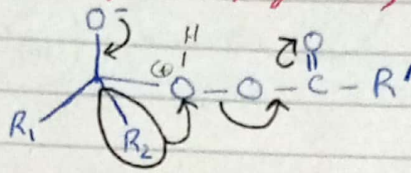 O⁻ H O
⊕ O – O – C – R'
R₁ R₂